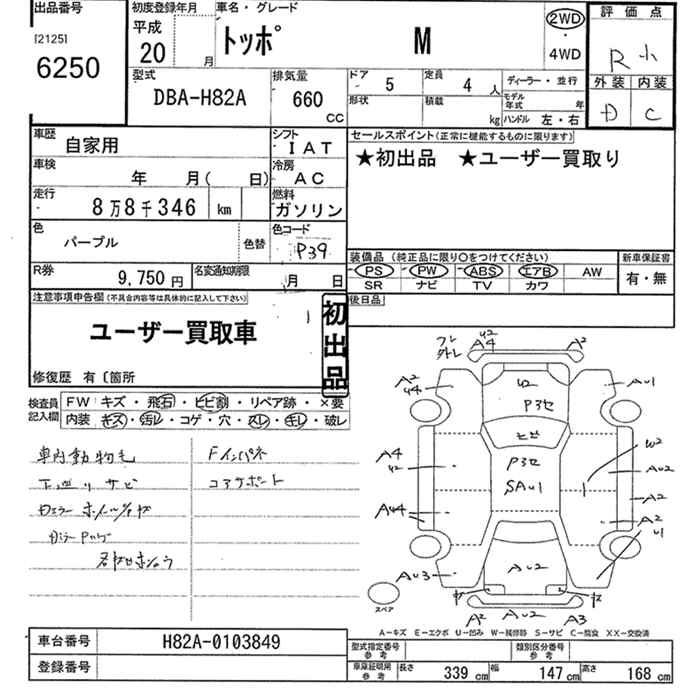 出品番号 初度登録年月 車名・グレード 評価点
[2125] 平成 2WD
6250 20 月 トッポ M ・ R 小
4WD
型式 排気量 ドア 5 定員 4 人 ディーラー・並行 外装 内装
DBA-H82A 660 CC 形状 積載 kg モデル年式 年 D C
ハンドル 左・右
車歴 自家用 シフト IAT セールスポイント(正常に機能するものに限ります)
車検 年 月( 日) 冷房 AC ★初出品 ★ユーザー買取り
走行 8万8千346 km 燃料 ガソリン
色 パープル 色替 色コード P39
装備品(純正品に限り○をつけてください) 新車保証書
R券 9,750円 名変通知期限 月 日 PS PW ABS エアB AW 有・無
SR ナビ TV カワ
注意事項申告欄(不具合内容等は具体的に記入して下さい) 初出品 後日品
ユーザー買取車
修復歴 有〔箇所
検査員記入欄 FW キズ・飛石・ヒビ割・リペア跡・×要
内装 キズ・汚レ・コゲ・穴・スレ・キレ・破レ
車内動物毛 Fインパネ
下廻りサビ コアサポート
A2 A4 U2 A2
A2 U4 U2 AU1
P3セ
ヒビ
A4 U2 P3セ W2
SAU1 AU2
A2
AU4 A2
U1
AU3 AU2
スペア A2 AU2 A3
A-キズ E-エクボ U-凹み W-補修跡 S-サビ C-腐食 XX-交換済
車台番号 H82A-0103849 型式指定番号 参考 類別区分番号 参考
登録番号 車庫証明用 参考 長さ 339 cm 幅 147 cm 高さ 168 cm